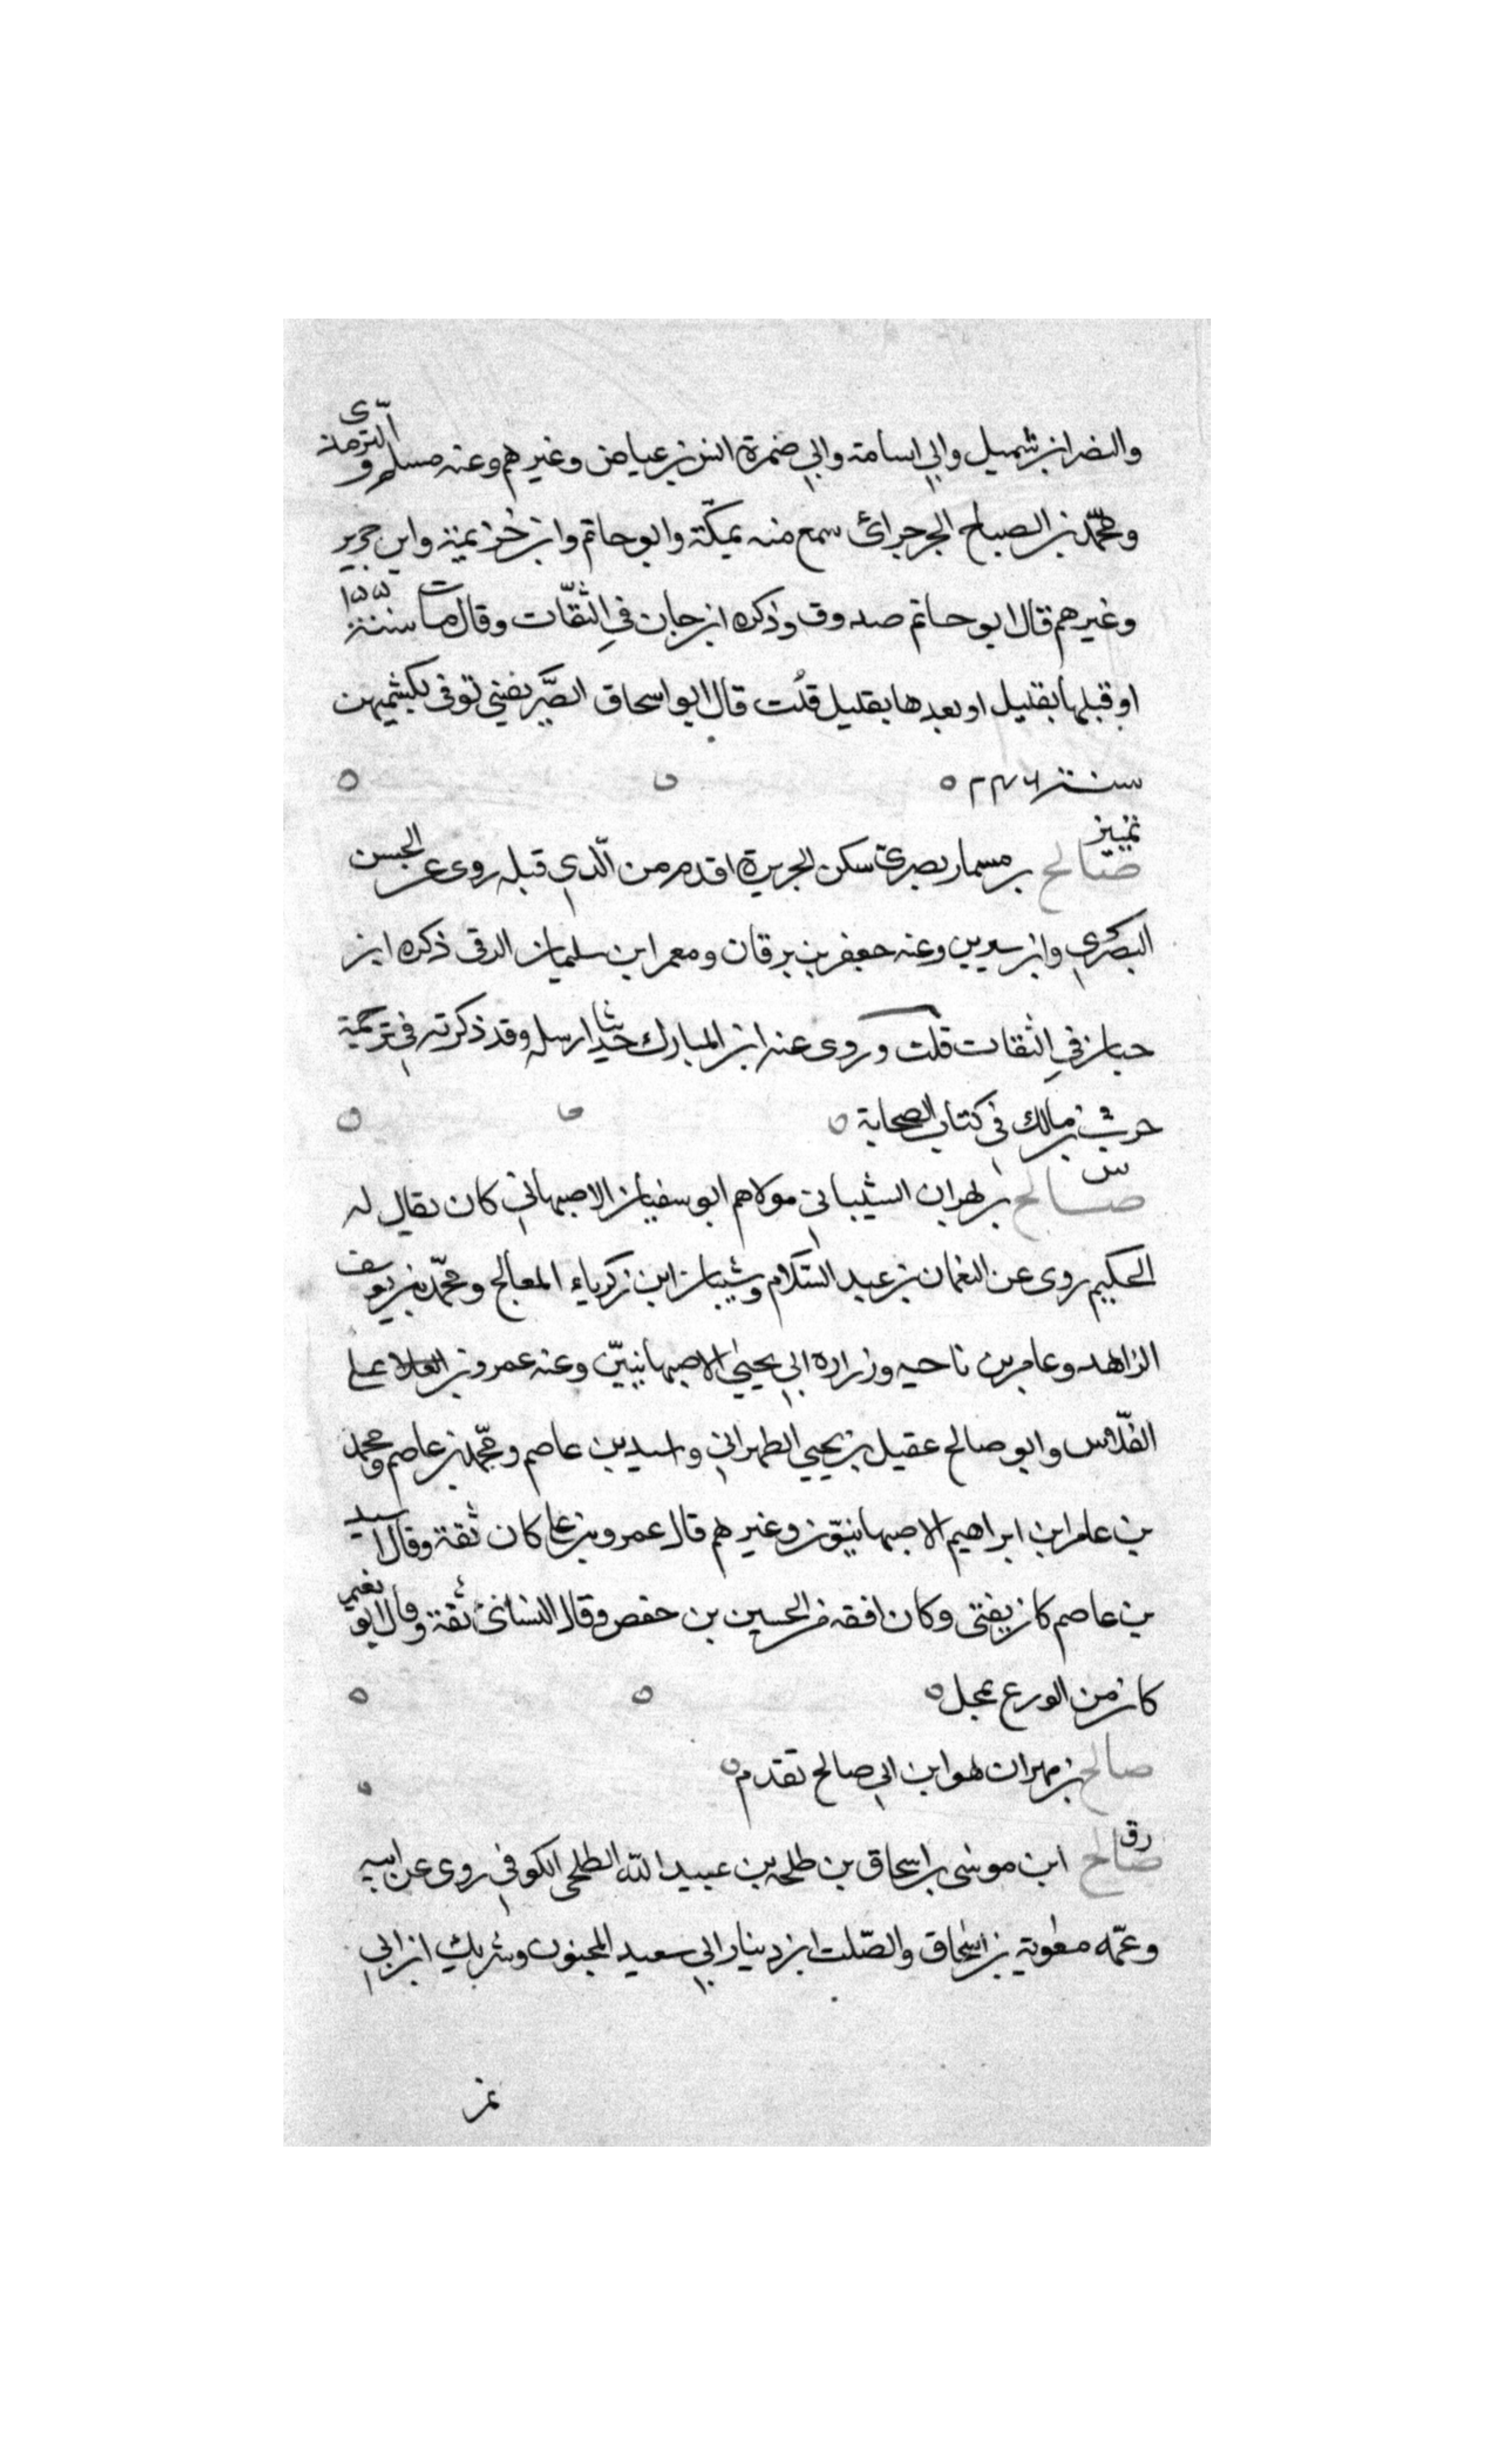 والنضر ابن شميل وابي اسامة وابي ضمرة انس بن عياض وغيرهم وعنه مسلم والترمذى
ومحمّد بن الصباح الجرجرائ سمع منه بمكّة وابو حاتم وابن خُزيمة وابن جرير
وغيرهم قال ابو حاتم صدوق وذكره ابن حبان في الثقات وقال مات سنة
او قبلها بقليل او بعدها بقليل قلت قال ابو اسحاق الصَّريفيني توفى بكشميهن
سنة ٢٤٦
تمييز
صالح بن مسمار بصرى سكن الجزيرة اقدم من الّذي قبله روى عن الحسن
البصري وابن سيرين وعنه جعفر بن برقان ومعمر ابن سليمان الرقى ذكره ابن
حبان في الثقات قلت وروى عنه ابن المبارك حديثا ارسله وقد ذكرته في ترجمة
حرث بن مالك في كتاب الصحابة
س
صالح بن مهران الشيباني مولاهم ابو سفيان الاصبهاني كان يقال له
الحكيم روى عن النعمان بن عبد السّلام وشيبان ابن زكرياء المعالج ومحمّد بن يوسف
الزاهد وعامر بن ناحيه وزراره ابي يحيى الاصبهانيّين وعنه عمرو بن على
الفلّاس وابو صالح عقيل بن يحيى الطهراني واسيد بن عاصم ومحمّد بن عاصم ومحمد
بن عامر ابن ابراهيم الاصبهانيّون وغيرهم قال عمرو بن على كان ثقة وقال اسيد
بن عاصم كان يفتى وكان افقه من الحسين بن حفص وقال النسائئ ثقة وقال ابو نعيم
كان من الورع بمحل
صالح بن مهران هو ابن ابي صالح تقدم
رق
صالح ابن موسى بن اسحاق بن طلحه بن عبيد الله الطلحى الكوفي روى عن ابيه
وعمّه معوية بن اسحاق والصّلت ابن دينار ابي سعيد المجنون وشريك ابن ابي
نمر